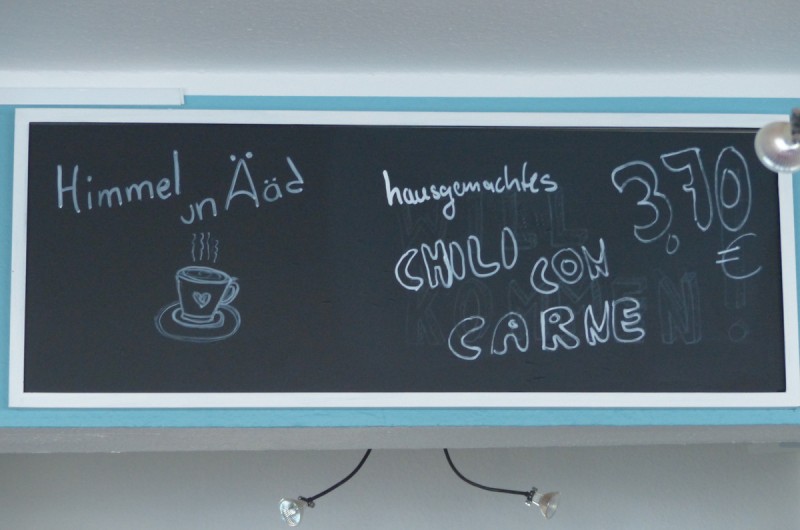 Himmel
un Ääd
hausgemachtes
CHILI CON
CARNE
3,70
€
WILL
KOMMEN!